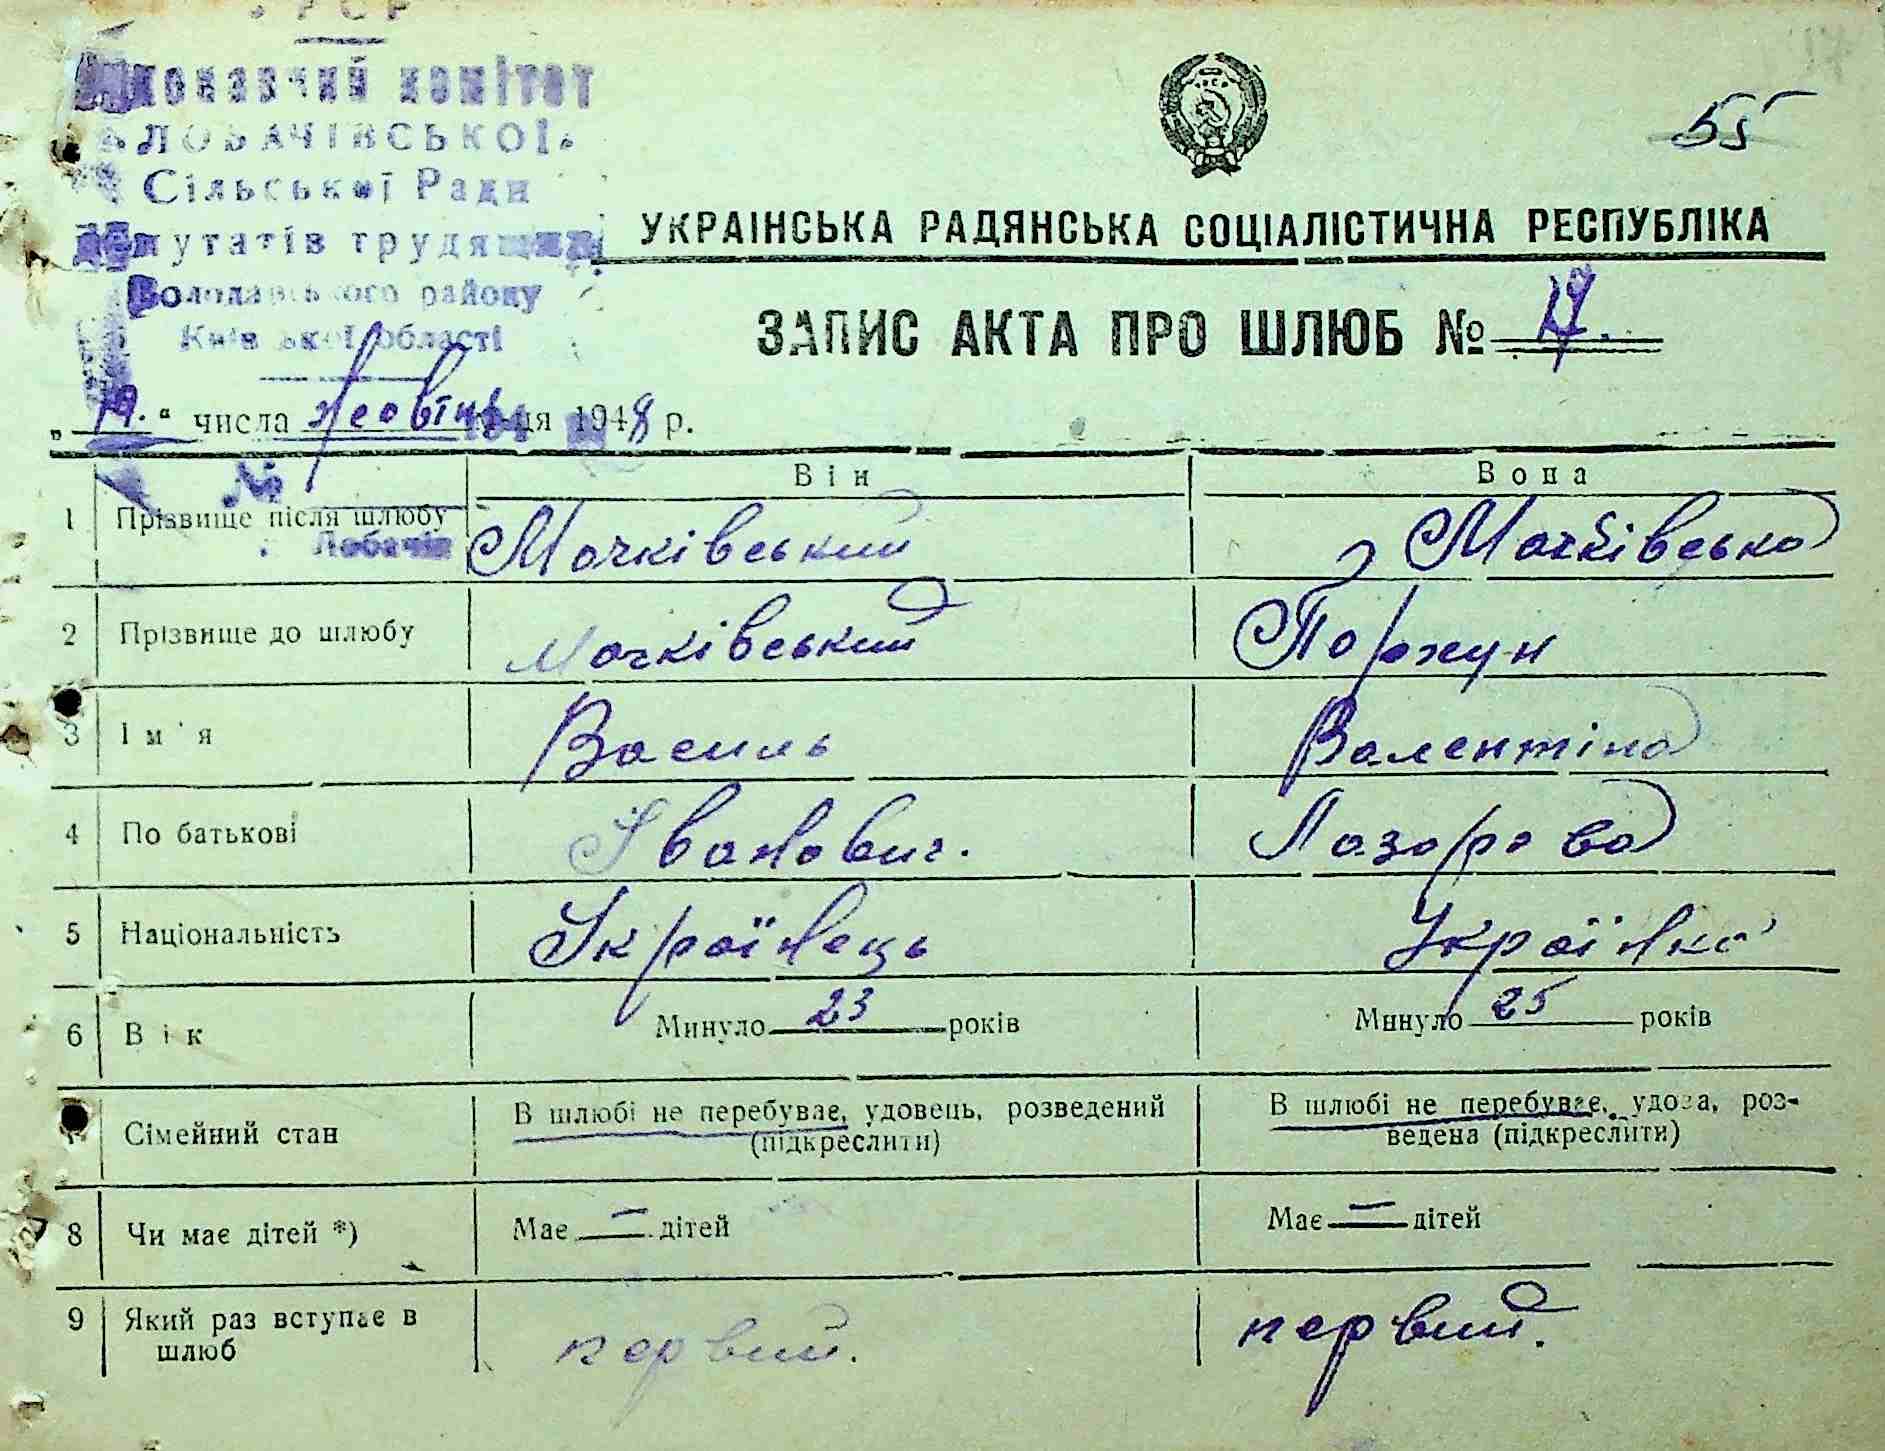 УРСР
Виконавчий комітет
ЛОБАЧІВСЬКОЇ
Сільської Ради
депутатів трудящих
Володарського району
Київської області
55
УКРАІНСЬКА РАДЯНСЬКА СОЦІАЛІСТИЧНА РЕСПУБЛІКА
ЗАПИС АКТА ПРО ШЛЮБ №
„19.“ числа жовтня м-ця 1948 р.
№
Він
Вона
1 Прізвище після шлюбу Мочківський Мочківська
Лобачів
2 Прізвище до шлюбу Мочківський Поржун
3 Ім'я Василь Валентіна
4 По батькові Іванович. Лазарова
5 Національність Українець Українка
6 Вік Минуло 23 років Минуло 25 років
7 Сімейний стан В шлюбі не перебуває, удовець, розведений (підкреслити) В шлюбі не перебуває, удова, роз-
ведена (підкреслити)
8 Чи має дітей *) Має — дітей Має — дітей
9 Який раз вступає в шлюб первий. первий.